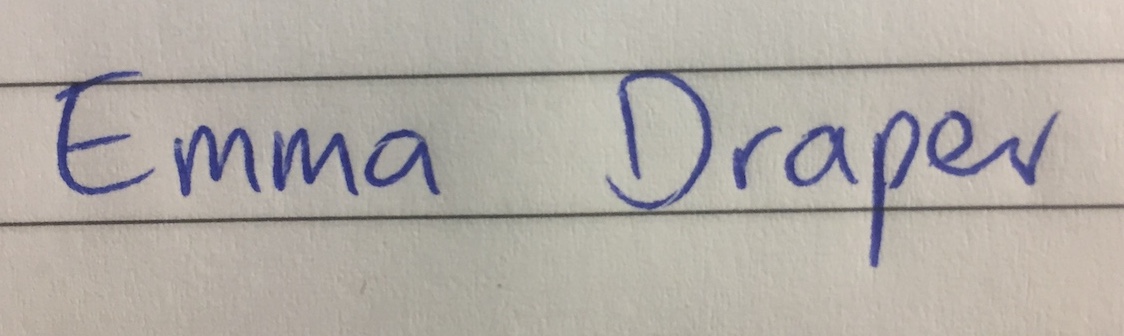 Emma Draper